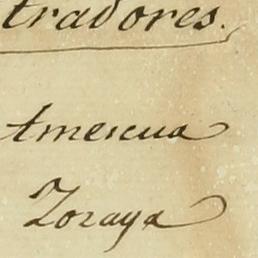 tradores.
Amescua
Zoraya